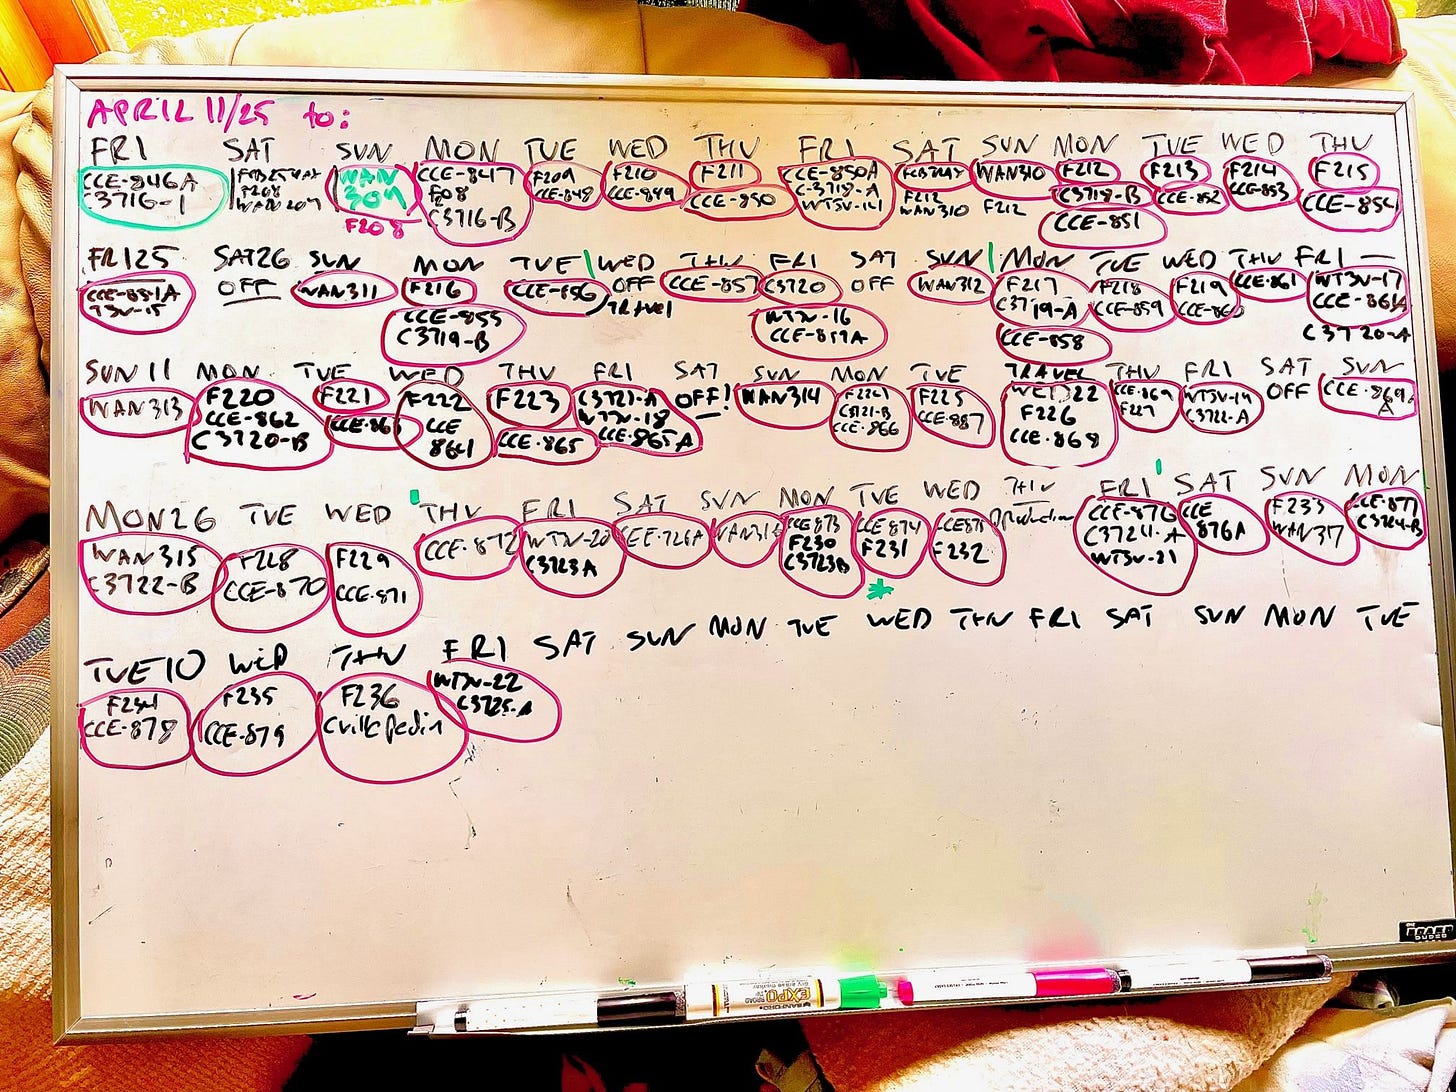 APRIL 11/25 to:
FRI SAT SUN MON TUE WED THU FRI SAT SUN MON TUE WED THU
CCE-846A WAN CCE-847 F209 F210 F211 CCE-850A WAN310 F212 F213 F214 F215
C3716-1 F208 309 F08 CCE-848 CCE-849 CCE-850 C-3718-A F212 F212 C3718-B CCE-852 CCE-853 CCE-854
WAN209 F208 C3716-B WTSV-141 WAN310 CCE-851
FRI25 SAT26 SUN MON TUE WED THU FRI SAT SUN MON TUE WED THU FRI —
CCE-851A OFF WAN311 F216 CCE-856 OFF CCE-857 C3720 OFF WAN312 F217 F218 F219 CCE-861 WTSV-17
TSV-15 CCE-855 TRAVEL WTSV-16 C3719-A CCE-859 CCE-860 CCE-861A
C3719-B CCE-857A CCE-858 C3720-A
SUN 11 MON TUE WED THU FRI SAT SUN MON TUE TRAVEL THU FRI SAT SUN
WAN313 F220 F221 F222 F223 C3721-A OFF! WAN314 F224 F225 WED 22 CCE-869 WTSV-19 OFF CCE-869
CCE-862 CCE-863 CCE CCE-865 WTSV-18 C3721-B CCE-887 F226 F227 C3722-A A
C3720-B 864 CCE-865A CCE-866 CCE-868
MON26 TUE WED THU FRI SAT SUN MON TUE WED THU FRI SAT SUN MON
WAN315 F228 F229 CCE-872 WTSV-20 CCE-726A WAN316 CCE873 CCE874 CCE875 CCE-876 CCE F233 CCE-877
C3722-B CCE-870 CCE-871 C3723A F230 F231 F232 C3724-A 876A WAN317 C3724-B
C3723B WTSV-21
TUE10 WED THU FRI SAT SUN MON TUE WED THU FRI SAT SUN MON TUE
F234 F235 F236 WTSV-22
CCE-878 CCE-879 Cville Pedia C3725-A
EXPO